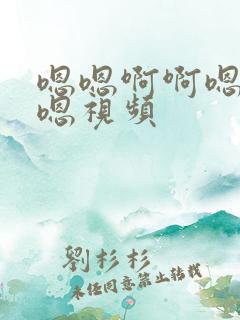 嗯嗯啊啊嗯
嗯視頻
劉杉杉
未经同意禁止转载